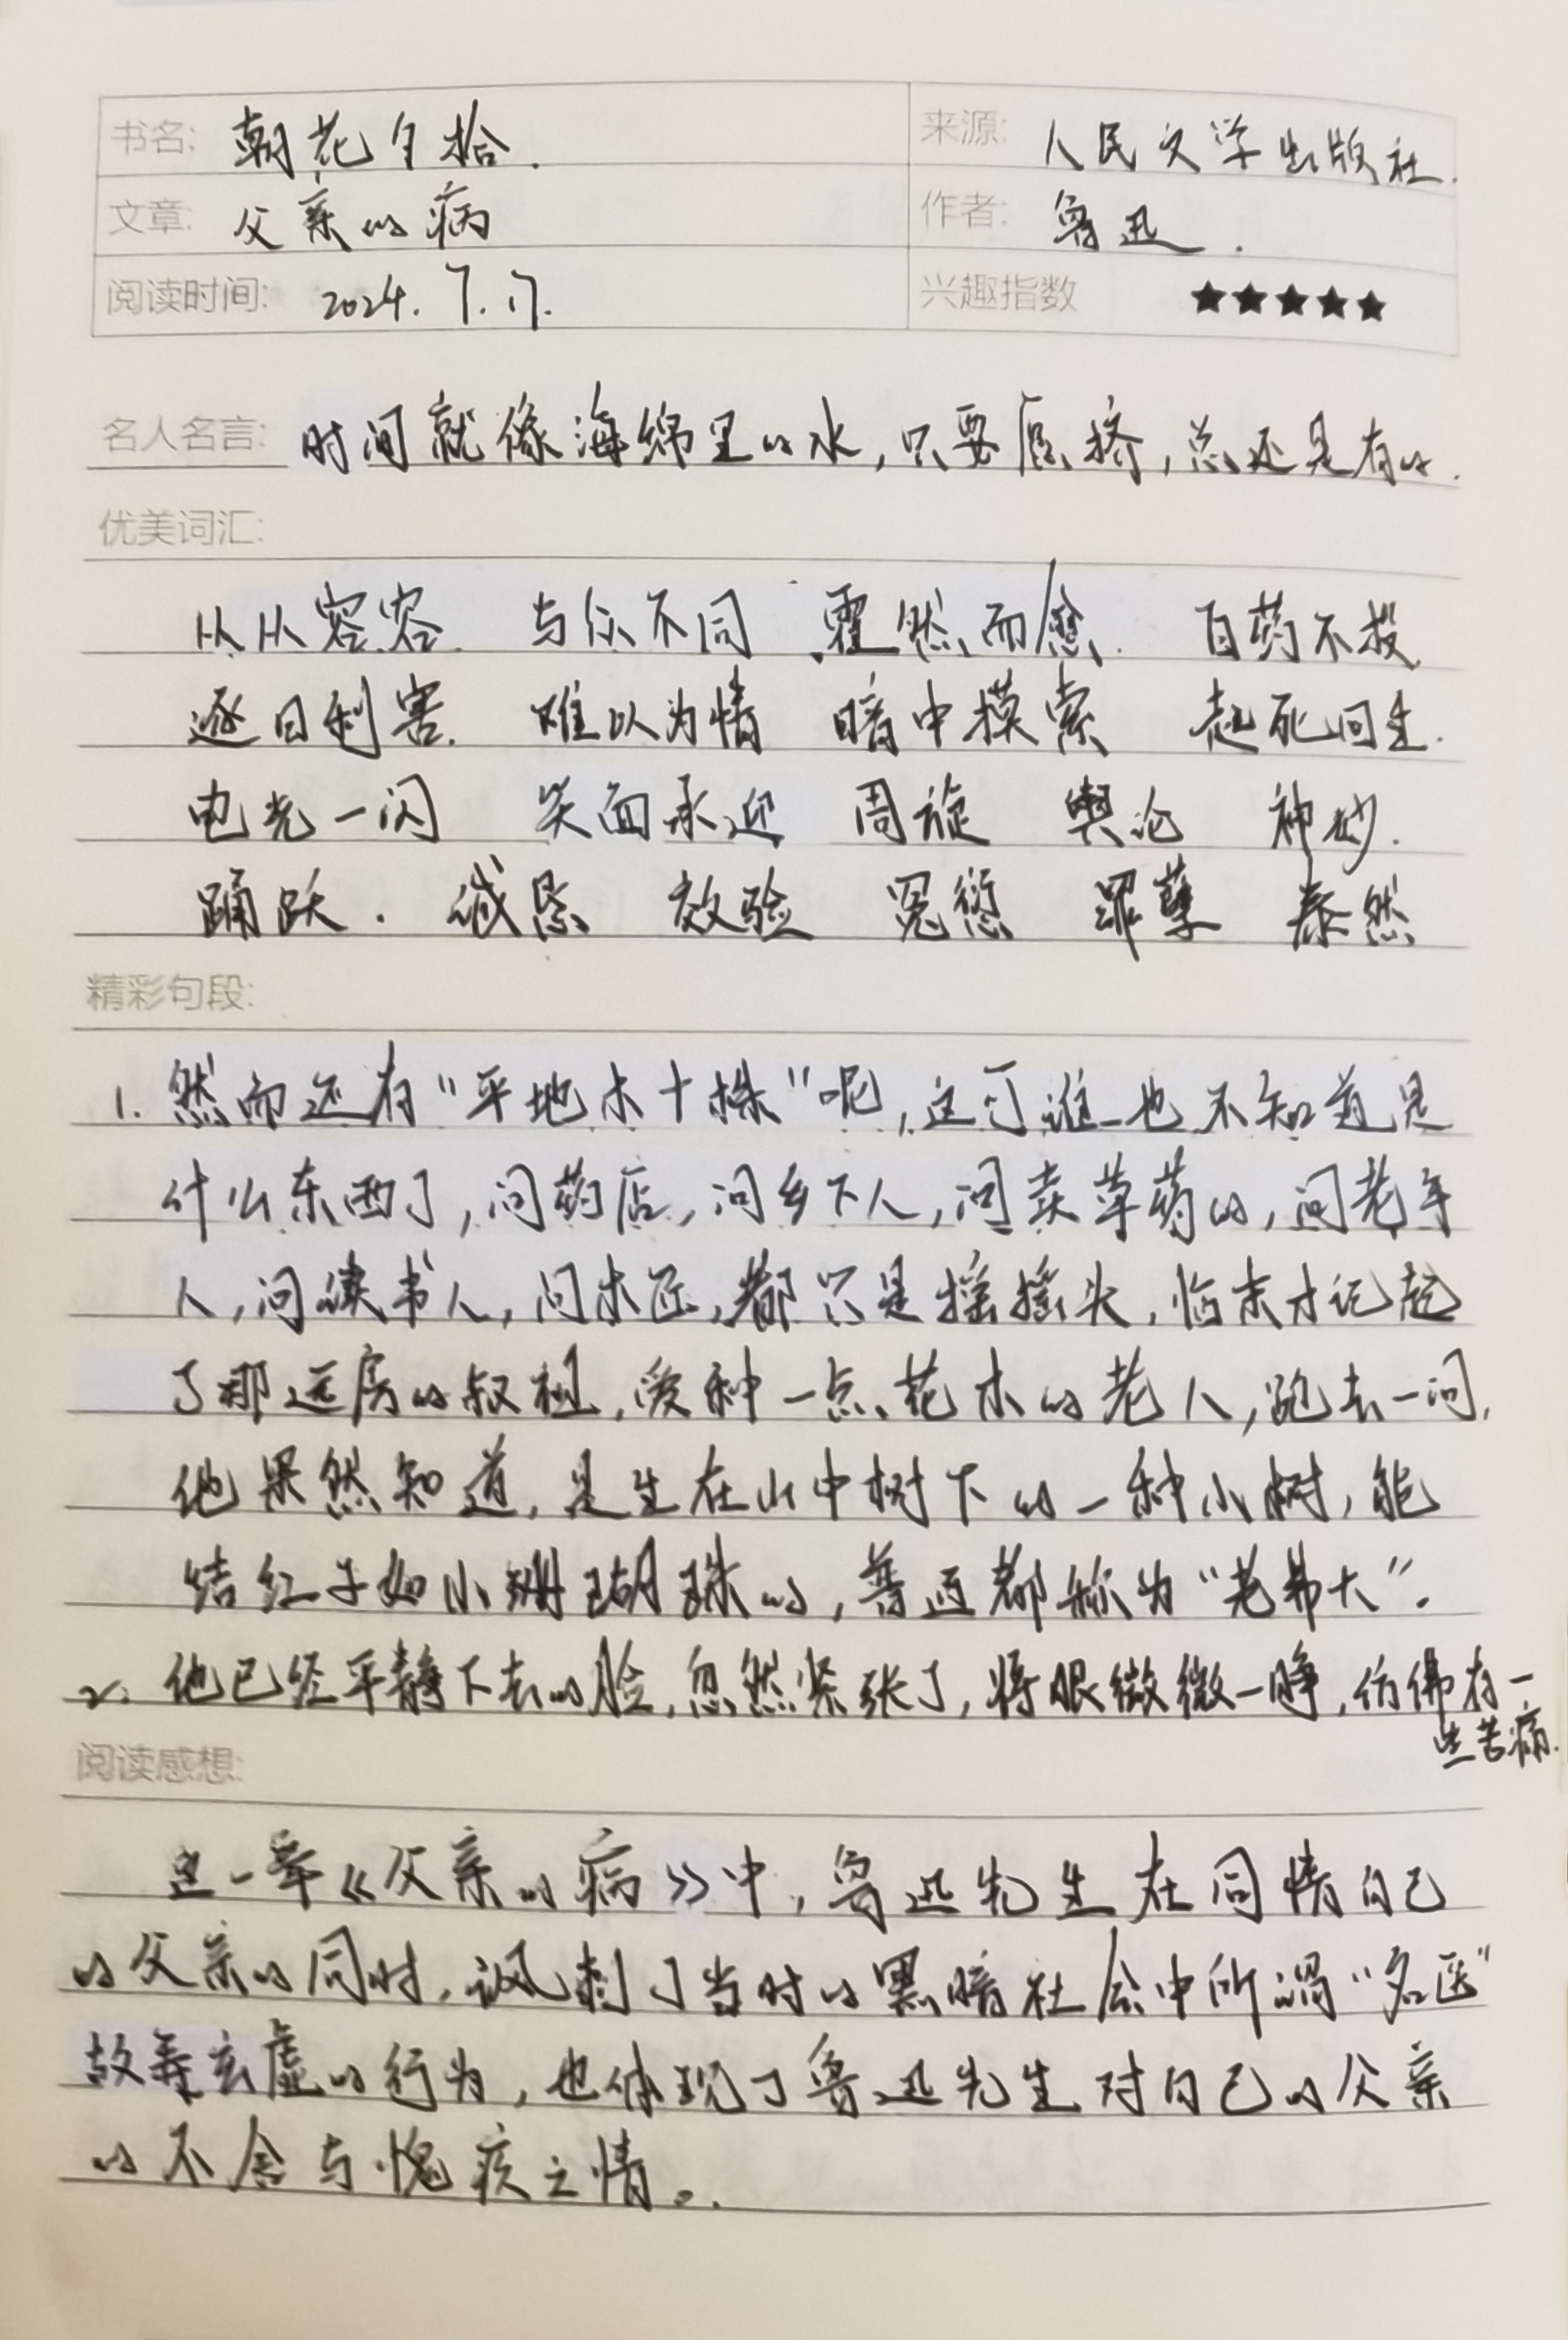 书名: 朝花夕拾. 来源: 人民文学出版社.
文章: 父亲的病 作者: 鲁迅.
阅读时间: 2024.7.17. 兴趣指数 ★★★★★
名人名言: 时间就像海绵里的水,只要愿挤,总还是有的.
优美词汇:
从从容容. 与众不同 霍然而愈. 百药不投
逐日利害. 难以为情 暗中摸索 起死回生.
电光一闪 笑面承迎 周旋 舆论 神妙.
踊跃. 诚恳 效验 冤愆 罪孽 泰然
精彩句段:
1. 然而还有“平地木十株”呢,这可谁也不知道是
什么东西了,问药店,问乡下人,问卖草药的,问老年
人,问读书人,问木匠,都只是摇摇头,临末才记起
了那远房的叔祖,爱种一点花木的老人,跑去一问,
他果然知道,是生在山中树下的一种小树,能
结红子如小珊瑚珠的,普通都称为“老弗大”.
2. 他已经平静下去的脸,忽然紧张了,将眼微微一睁,仿佛有一
些苦痛.
阅读感想:
这一章《父亲的病》中,鲁迅先生在同情自己
的父亲的同时,讽刺了当时的黑暗社会中所谓“名医”
故弄玄虚的行为,也体现了鲁迅先生对自己的父亲
的不舍与愧疚之情。.